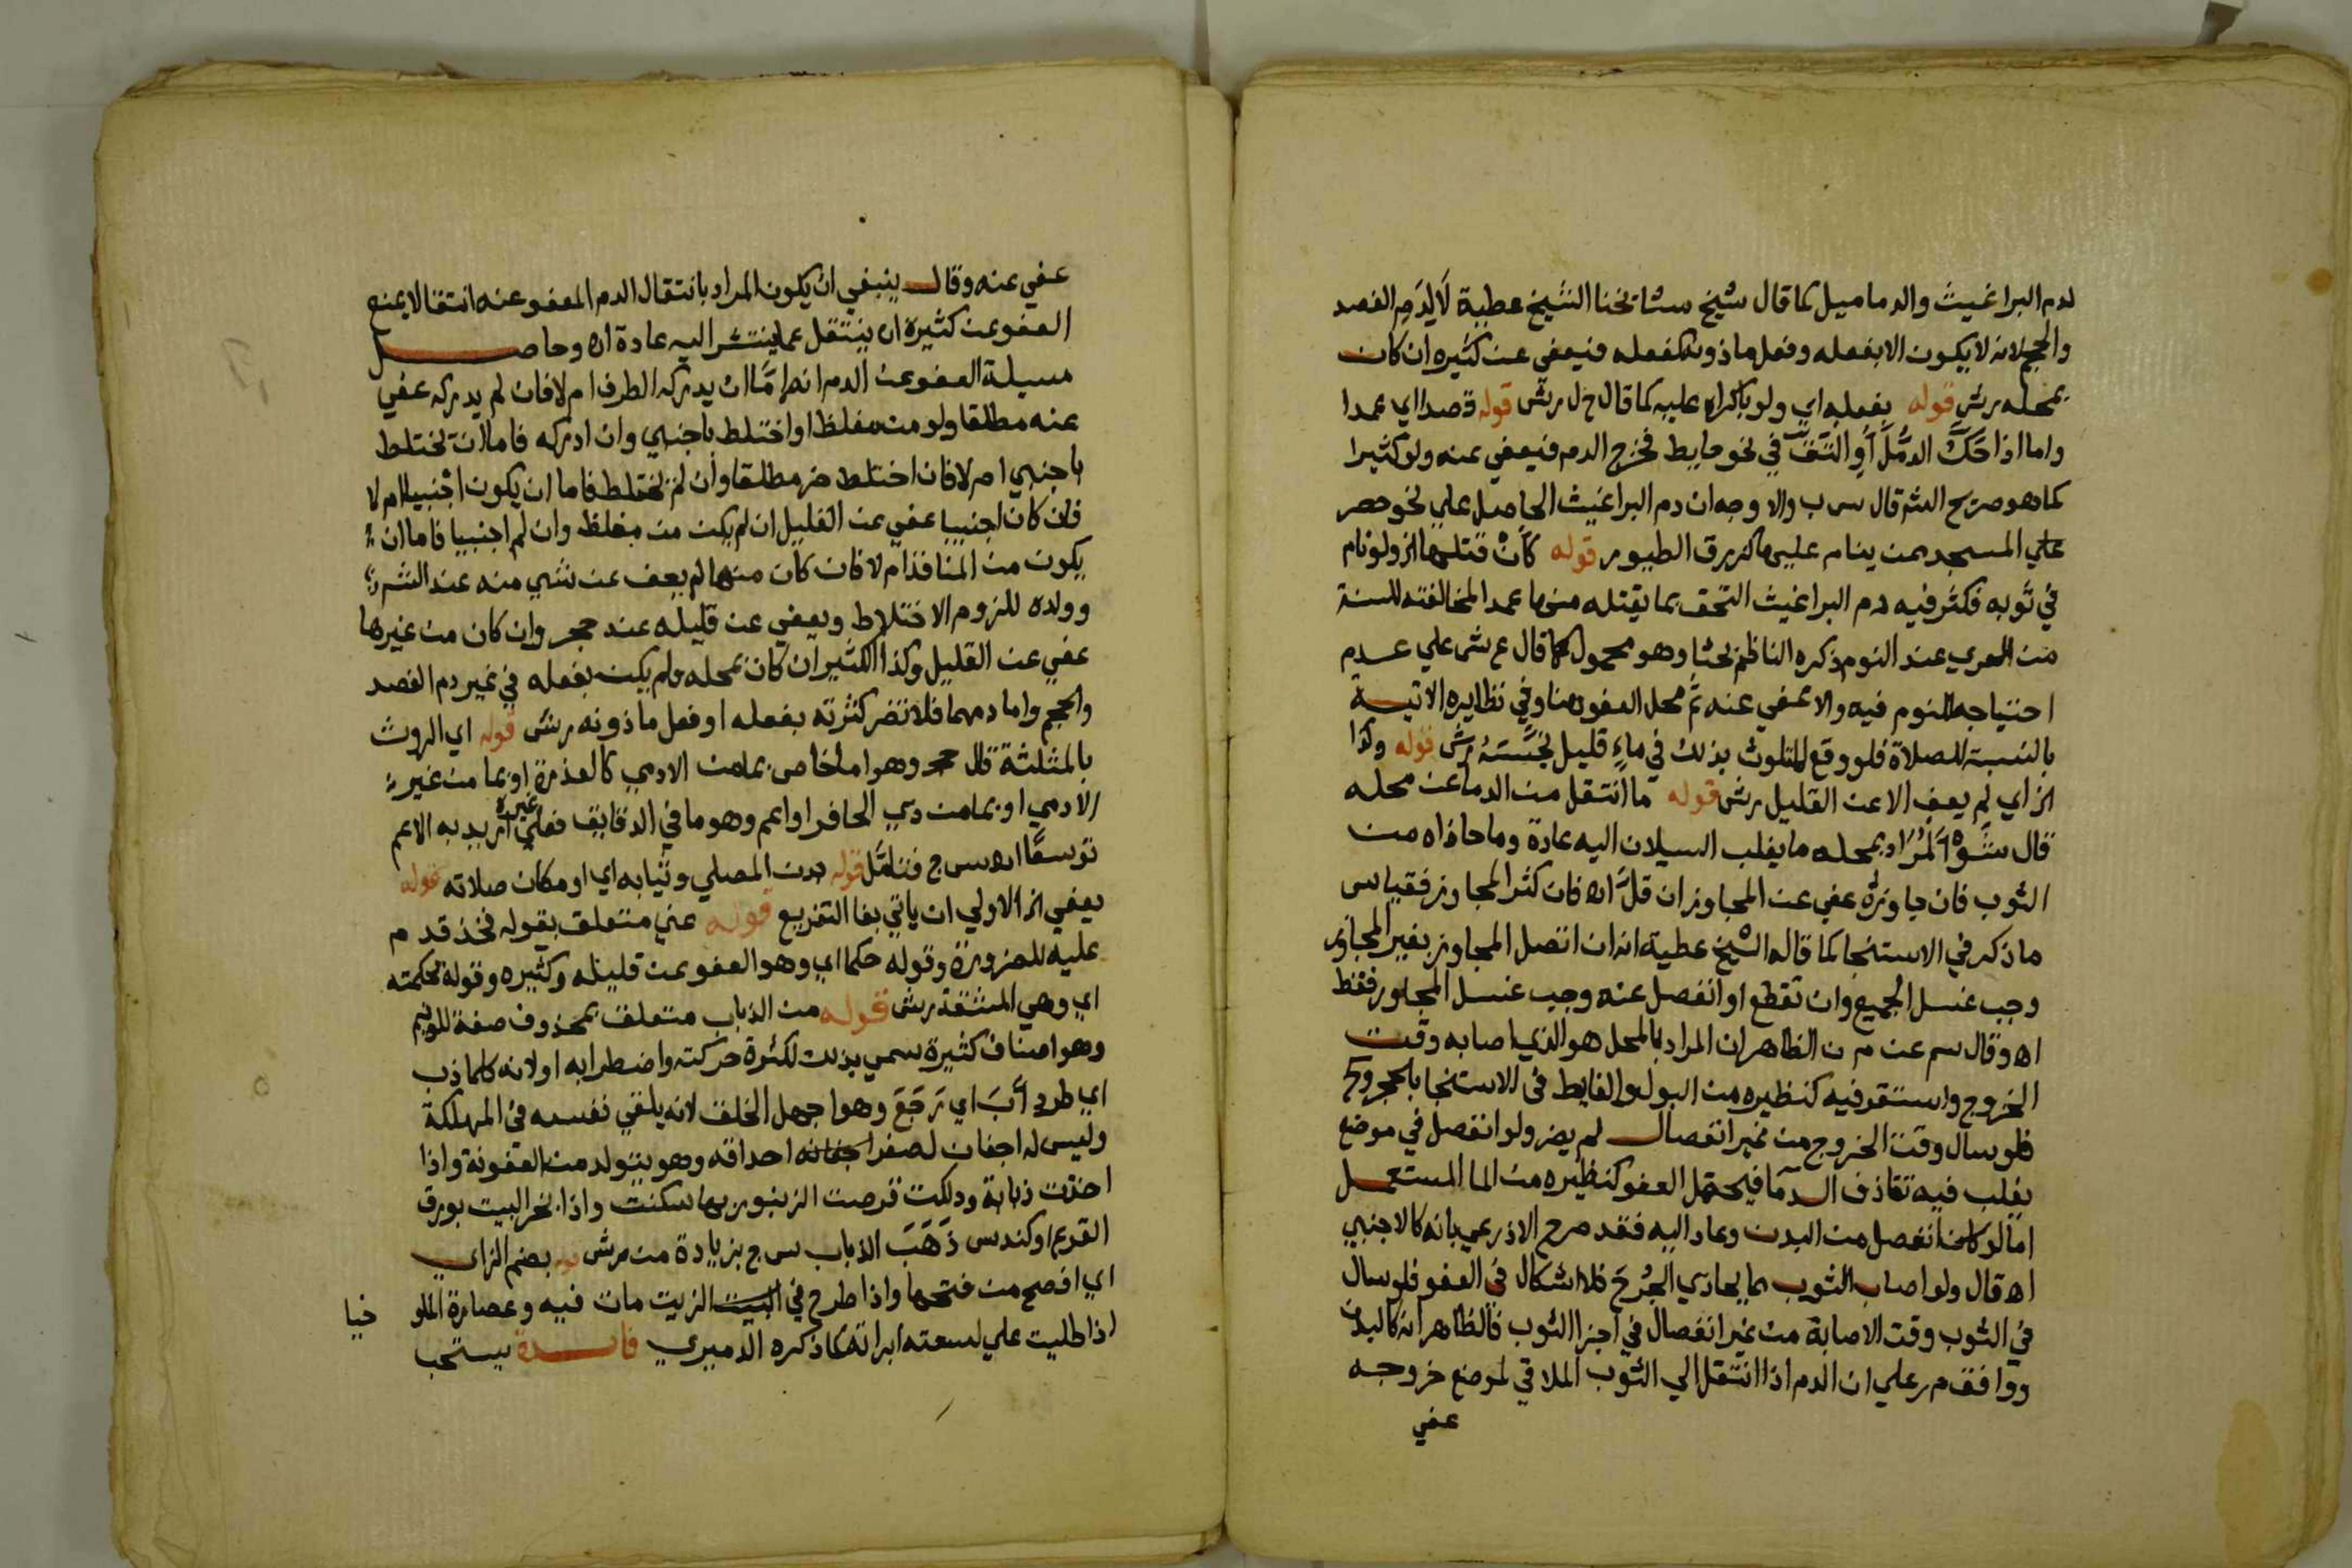 لدم البراغيث والدماميل كما قال شيخ مشايخنا الشيخ عطية لا لدم الفصد
والحجم لانه لا يكون الا بفعله وفعل ماذونه كفعله فيعفي عن كثيره ان كان
بمحله رش قوله بفعله اي ولو باكراه عليه كما قال ح ل رش قوله قصدا اي عمدا
واما اذا حك الدمل او التف في نحو حايط فخرج الدم فيعفي عنه ولو كثيرا
كما هو صريح الشم قال س ب والاوجه ان دم البراغيث الحاصل علي نحو حصر
علي المسجد ممن ينام عليها كزرق الطيور قوله كان قتلها الخ ولو نام
في ثوبه فكثر فيه دم البراغيث التحق بما يقتله منها عمدا لمخالفته للسنة
من العري عند النوم ذكره الناظم بحثا وهو محمول كما قال ع ش علي عدم
احتياجه للنوم فيه والا عفي عنه ثم محل العفو هنا وفي نظايره الاتية
بالنسبة للصلاة فلو وقع المتلوث بذلك في ماء قليل نجسته رش قوله وكذا
الخ اي لم يعف الا عن القليل رش قوله ما انتقل من الدما عن محله
قال ش والمراد بمحله ما يغلب السيلان اليه عادة وما حاذاه من
الثوب فان جاوزه عفي عن المجاوز ان قل اه فان كثر المجاوز فقياس
ما ذكر في الاستنجا كما قاله الشيخ عطية انه ان اتصل المجاوز بغير المجاوز
وجب غسل الجميع وان تقطع او انفصل عنه وجب غسل المجاوز فقط
اه وقال سم عن م ن الظاهر ان المراد بالمحل هو الذي اصابه وقت
الخروج واستقر فيه كنظيره من البول والغايط في الاستنجا بالحجر وح
فلو سال وقت الخروج من غير انفصال لم يضر ولو انفصل في موضع
يغلب فيه تقاذف الدما فيحتمل العفو كنظيره من الما المستعمل
اما لو كان انفصل من البدن وعاد اليه فقد صرح الاذرعي بانه كالاجنبي
اه قال ولو اصاب الثوب مما يحاذي الجرح فلا اشكال في العفو فلو سال
في الثوب وقت الاصابة من غير انفصال في اجزا الثوب فالظاهر انه كالبدن
ووافق م ر علي ان الدم اذا انتقل الي الثوب الملاقي لموضع خروجه
عفي
عفي عنه وقال ينبغي ان يكون المراد بانتقال الدم المعفو عنه انتقالا يمنع
العفو عن كثيره ان ينتقل عما ينتشر اليه عادة اه وحاصل
مسيلة العفو عن الدم انه اما ان يدركه الطرف ام لا فان لم يدركه عفي
عنه مطلقا ولو من مغلظ او اختلط باجنبي وان ادركه فاما ان يختلط
باجنبي ام لا فان اختلط ضر مطلقا وان لم يختلط فاما ان يكون اجنبيا ام لا
فان كان اجنبيا عفي عن القليل ان لم يكن من مغلظ وان لم اجنبيا فاما ان
يكون من المنافذ ام لا فان كان منها لم يعف عن شي منه عند الشم ر
وولده للزوم الاختلاط ويعفي عن قليله عند حجر وان كان من غيرها
عفي عن القليل وكذا الكثير ان كان بمحله ولم يكن بفعله في غير دم الفصد
والحجم واما دمهما فلا تضر كثرته بفعله او فعل ماذونه رش قوله اي الروث
بالمثلثة قال حجر وهو اما خاص بما من الادمي كالعذرة او بما من غير
الادمي او بما من ذي الحافر او اعم وهو ما في الدقايق فعلي غيره اريد به الاعم
توسعا اه س ج فتامل قوله بدن المصلي وثيابه اي او مكان صلاته قوله
يعفي الخ الاولي ان ياتي بفا التفريع قوله عني متعلق بقوله فخذ قدم
عليه للضرورة وقوله حكما اي وهو العفو عن قليله وكثيره وقوله حكمته
اي وهي المشقة رش قوله من الذباب متعلق بمحذوف صفة للونيم
وهو اصناف كثيرة سمي بذلك لكثرة حركته واضطرابه او لانه كلما ذب
اي طرد آب اي رجع وهو اجهل الخلق لانه يلقي نفسه في المهلكة
وليس له اجفان لصغر احداقه وهو يتولد من العفونة واذا
اخذت ذبابة ودلكت قرصت الزنبور بها سكنت واذا بخر البيت بورق
القرع او كندس ذهب الذباب س ج بزيادة من رش قوله بضم الزاي
اي افصح من فتحها واذا طرح في الزيت مات فيه وعصارة الملو خيا
اذا طليت علي لسعته ابراته كما ذكره الدميري فايدة يستحب